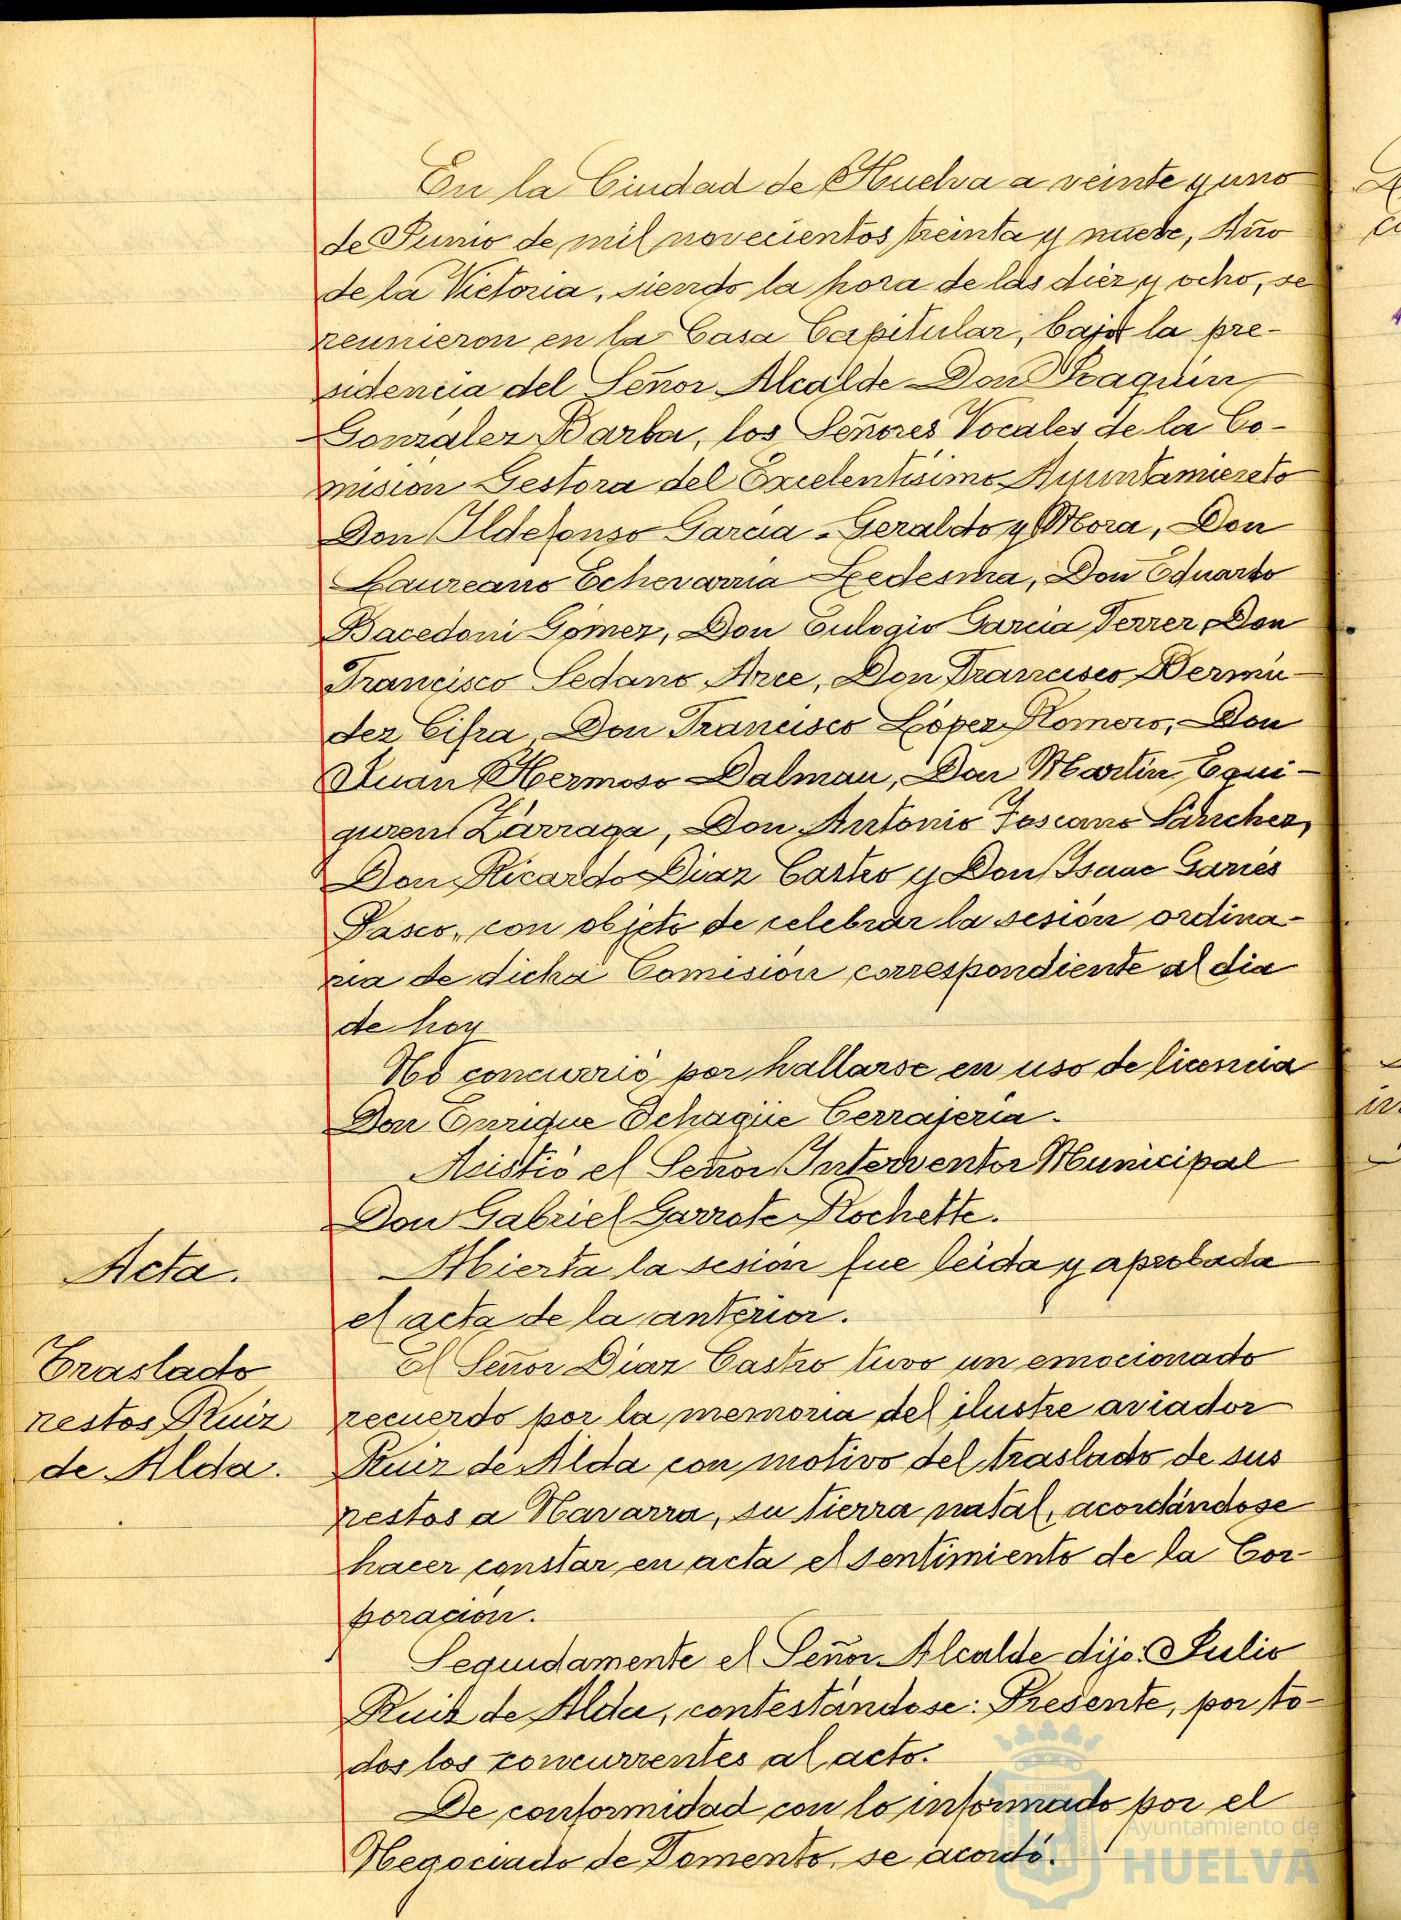 En la Ciudad de Huelva a veinte y uno
de Junio de mil novecientos treinta y nueve, Año
de la Victoria, siendo la hora de las diez y ocho, se
reunieron en la Casa Capitular, bajo la pre-
sidencia del Señor Alcalde Don Joaquín
González Barba, los Señores Vocales de la Co-
misión Gestora del Excelentísimo Ayuntamiento
Don Ildefonso García-Geraldo y Mora, Don
Laureano Echevarría Ledesma, Don Eduardo
Bacedoni Gómez, Don Eulogio García Ferrer, Don
Francisco Sedano Arce, Don Francisco Bermú-
dez Cifra, Don Francisco López Romero, Don
Juan Hermoso Dalmau, Don Martín Egui-
guren Zárraga, Don Antonio Toscano Sánchez,
Don Ricardo Díaz Castro y Don Isaac Garcés
Pasco, con objeto de celebrar la sesión ordina-
ria de dicha Comisión correspondiente al dia
de hoy
No concurrió por hallarse en uso de licencia
Don Enrique Echagüe Cerrajería.
Asistió el Señor Interventor Municipal
Don Gabriel Garrote Rochette.
Acta.
Abierta la sesión fue leída y aprobada
el acta de la anterior.
Traslado
restos Ruiz
de Alda.
El Señor Díaz Castro tuvo un emocionado
recuerdo por la memoria del ilustre aviador
Ruiz de Alda con motivo del traslado de sus
restos a Navarra, su tierra natal, acordándose
hacer constar en acta el sentimiento de la Cor-
poración.
Seguidamente el Señor Alcalde dijo: Julio
Ruiz de Alda, contestándose: Presente, por to-
dos los concurrentes al acto.
De conformidad con lo informado por el
Negociado de Fomento, se acordó:
Ayuntamiento de
HUELVA